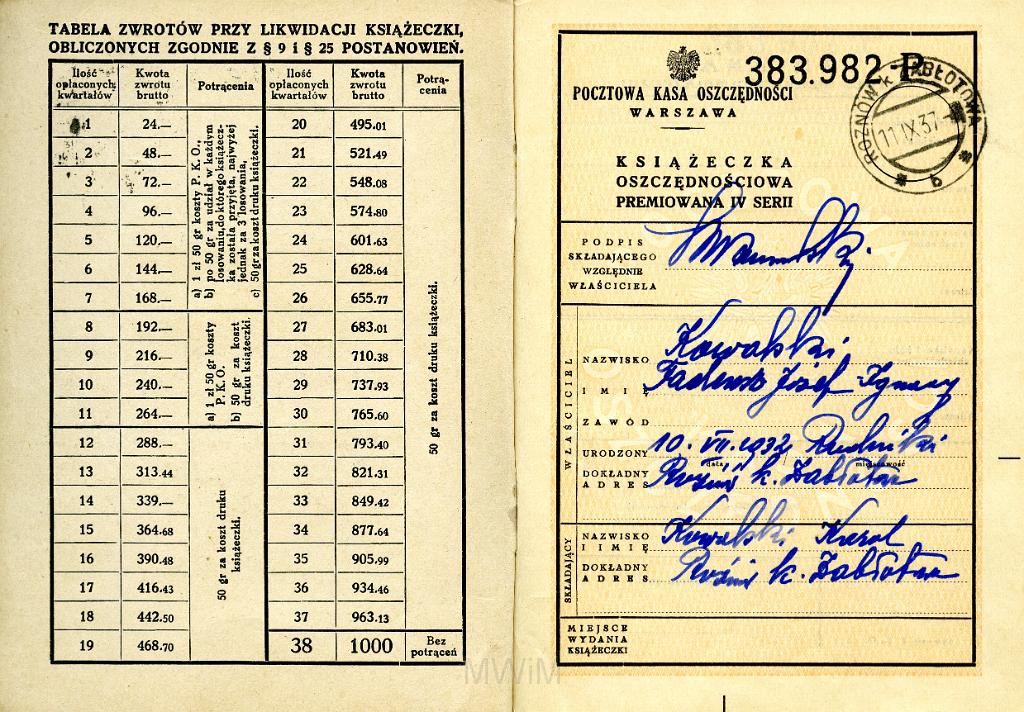 TABELA ZWROTÓW PRZY LIKWIDACJI KSIĄŻECZKI,
OBLICZONYCH ZGODNIE Z § 9 i § 25 POSTANOWIEŃ.
Ilość opłaconych kwartałów | Kwota zwrotu brutto | Potrącenia | Ilość opłaconych kwartałów | Kwota zwrotu brutto | Potrą-cenia
1 24.— 20 495.01
2 48.— 21 521.49
3 72.— 22 548.08
4 96.— 23 574.80
5 120.— 24 601.63
6 144.— 25 628.64
7 168.— 26 655.77
8 192.— 27 683.01
9 216.— 28 710.38
10 240.— 29 737.93
11 264.— 30 765.60
12 288.— 31 793.40
13 313.44 32 821.31
14 339.— 33 849.42
15 364.68 34 877.64
16 390.48 35 905.99
17 416.43 36 934.46
18 442.50 37 963.13
19 468.70 38 1000 Bez potrąceń
a) 1 zł 50 gr koszty P. K. O.,
b) po 50 gr za udział w każdym
losowaniu, do którego książecz-
ka została przyjęta, najwyżej
jednak za 3 losowania,
c) 50 gr za koszt druku książeczki.
a) 1 zł 50 gr koszty
P. K. O.
b) 50 gr za koszt
druku książeczki.
50 gr za koszt druku
książeczki.
50 gr za koszt druku książeczki.
383.982 P
POCZTOWA KASA OSZCZĘDNOŚCI
WARSZAWA
ROŻNÓW K. ZABŁOTOWA
11 IX 37
b
KSIĄŻECZKA
OSZCZĘDNOŚCIOWA
PREMIOWANA IV SERII
PODPIS
SKŁADAJĄCEGO
WZGLĘDNIE
WŁAŚCICIELA
WŁAŚCICIEL
NAZWISKO Kowalski
IMIĘ Tadeusz Józef Ignacy
ZAWÓD
URODZONY 10. VII. 1932 Rudniki
data miejscowość
DOKŁADNY
ADRES Rożnów k. Zabłotowa
SKŁADAJĄCY
NAZWISKO
I IMIĘ Kowalski Karol
DOKŁADNY
ADRES Rożnów k. Zabłotowa
MIEJSCE
WYDANIA
KSIĄŻECZKI
MWiM